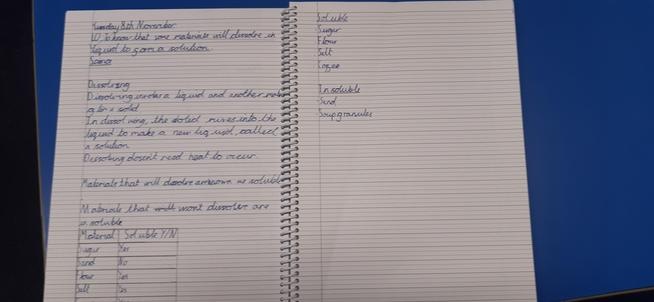 Tuesday 8th November
LO To know that some materials will dissolve in
liquid to form a solution.
Science
Dissolving
Dissolving involves a liquid and another
In dissolving, the solid mixes into the
liquid to make a new liquid, called
a solution.
Dissolving doesn't need heat to occur.
Materials that will dissolve are known as soluble
Materials that wont dissolve are
in soluble
Material Soluble Y/N
Sugar Yes
Sand No
Flour Yes
Salt Yes
Soluble
Sugar
Flour
Salt
Insoluble
Sand
Soup granules